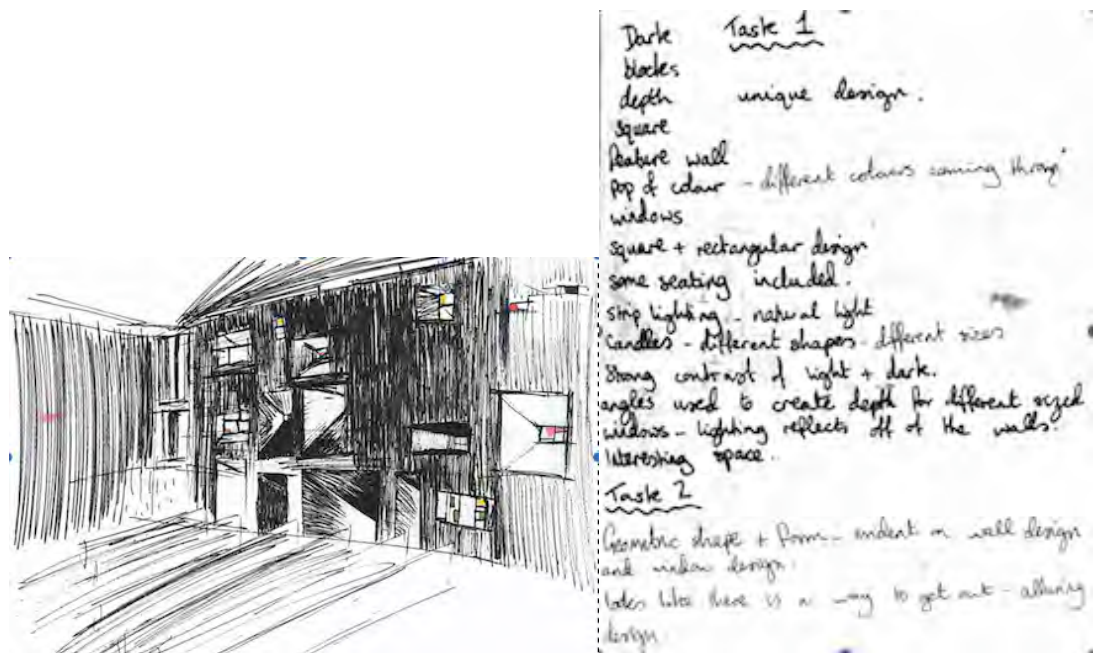 Task 1
Dark
blocks
depth
unique design.
square
Feature wall
Pop of colour - different colours coming through
windows
square + rectangular design
some seating included.
strip lighting - natural light
Candles - different shapes - different sizes
Strong contrast of light + dark.
angles used to create depth for different sized
windows - lighting reflects off of the walls.
Interesting space.
Task 2
Geometric shape + form - indent on wall design
and window design.
looks like there is a way to get out - alluring
design.